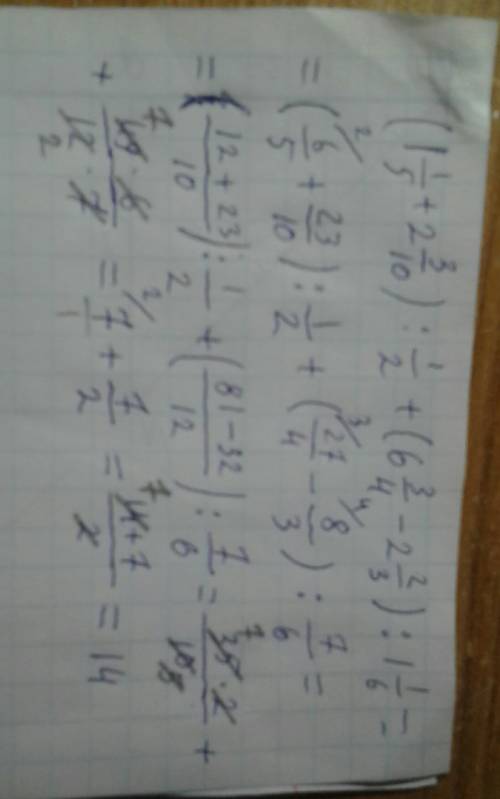 (1 1/5 + 2 3/10) : 1/2 + (6 3/4 - 2 2/3) : 1 1/6 =
= (2/ 6/5 + 23/10) : 1/2 + (3/ 27/4 - 4/ 8/3) : 7/6 =
= (12+23/10) : 1/2 + (81-32/12) : 7/6 = 7 35·2/10 +
+ 7 49·6/12·7 2 = 2/ 7/1 + 7/2 = 7 14+7/2 = 14